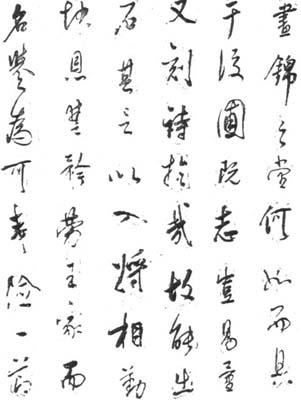 晝錦之堂何如而其
于後圃既志豈易量
又刻詩於哉故能出
石其言以入將相勤
快恩讎矜勞王家而
名譽為可夷險一節